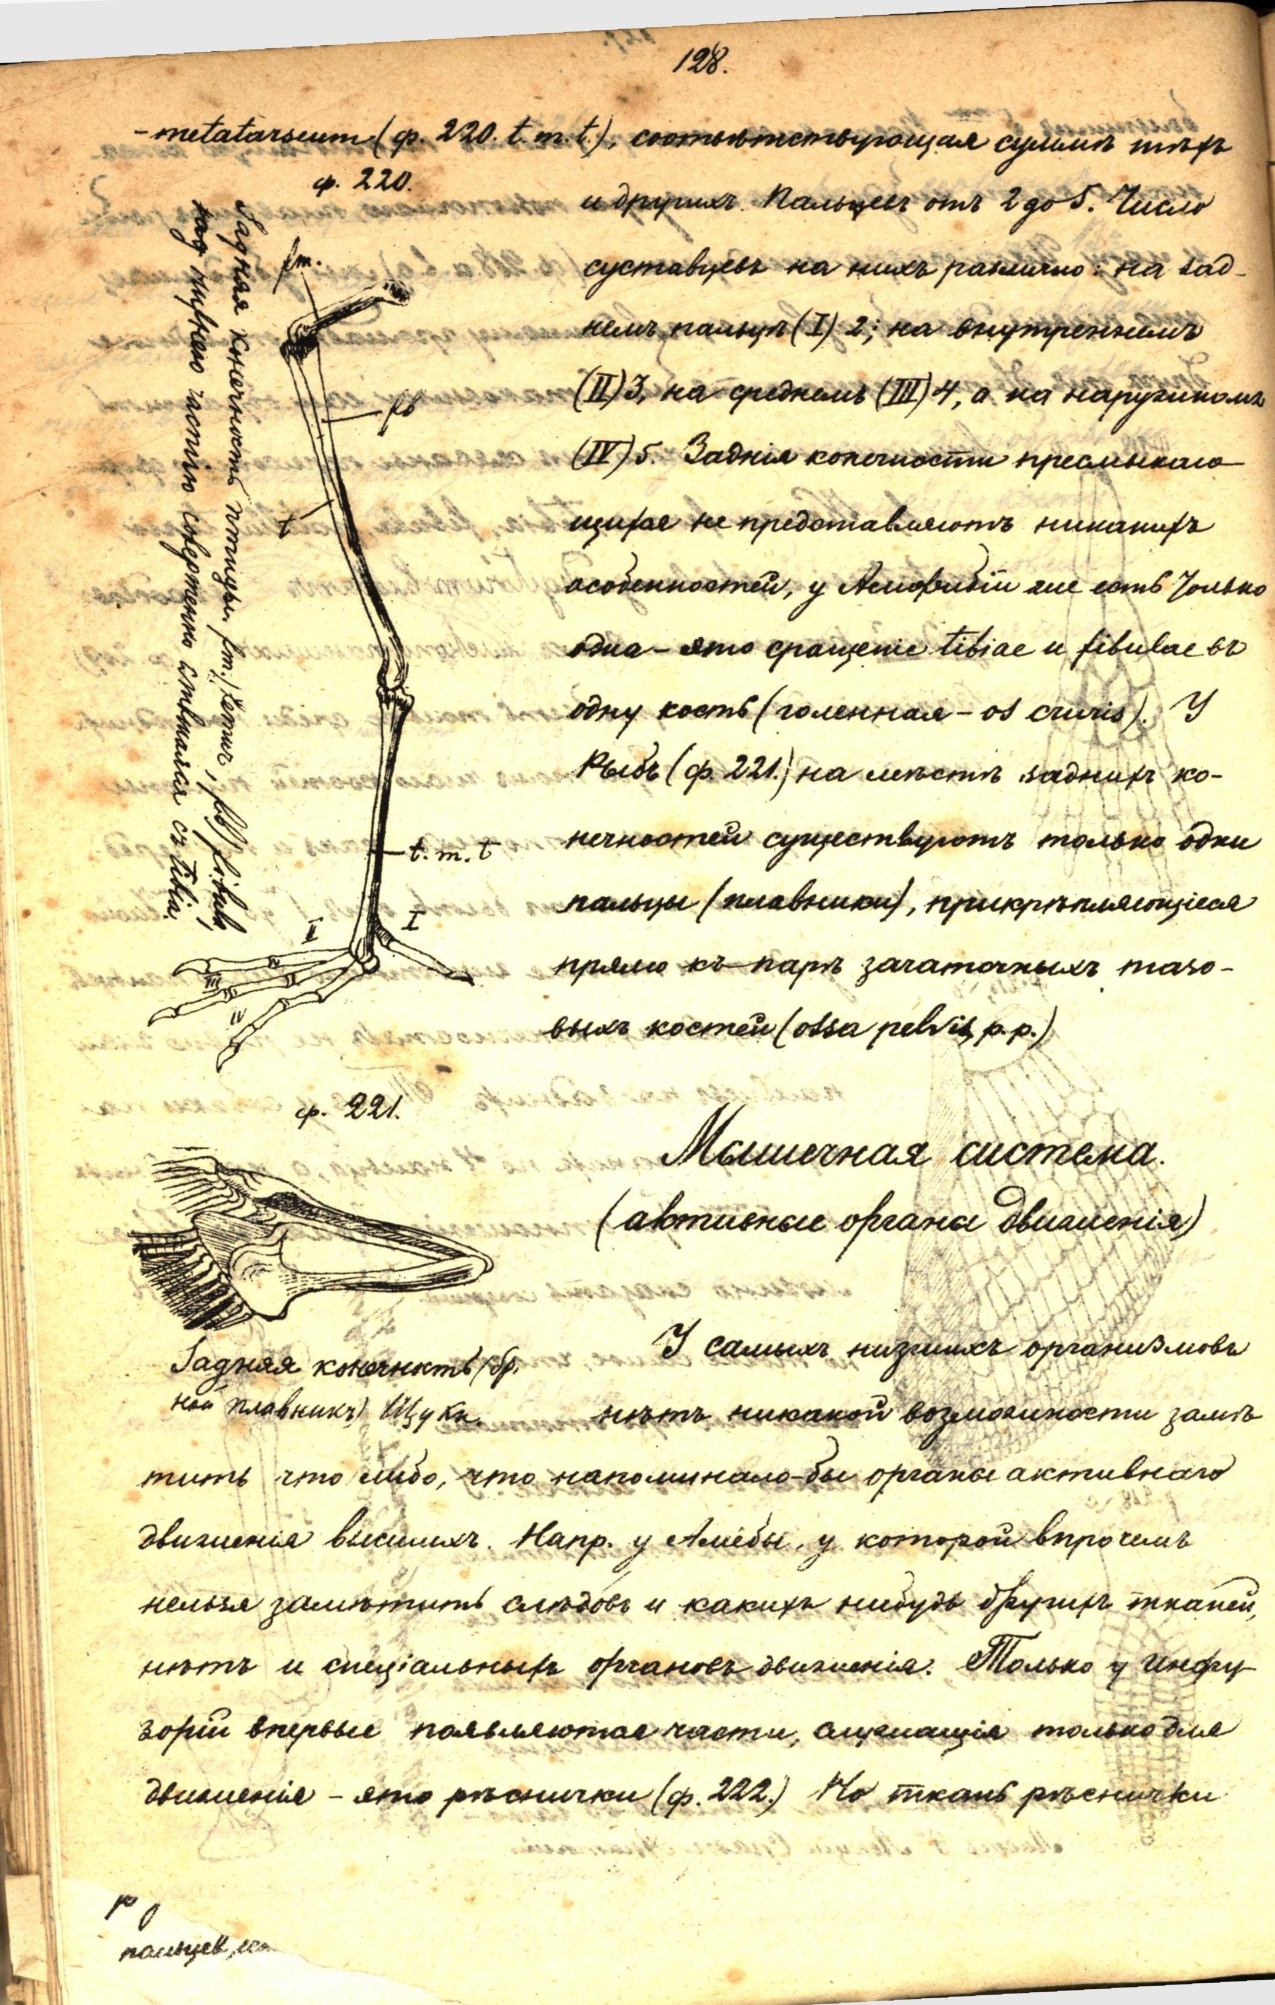 128.
-metatarseum (ф. 220. t. m. t.), соотвѣтствующая суммѣ тѣхъ
ф. 220.
и другихъ. Пальцевъ отъ 2 до 5. Число
суставцевъ на нихъ различно: на зад-
немъ пальцѣ (I) 2; на внутреннемъ
(II) 3, на среднемъ (III) 4, а на наружномъ
(IV) 5. Заднія конечности пресмыкаю-
щихся не представляютъ никакихъ
особенностей, у Амфибій же есть только
одна – это сращеніе tibiae и fibulae въ
одну кость (голенная – os cruris). У
Рыбъ (ф. 221.) на мѣстѣ заднихъ ко-
нечностей существуютъ только одни
пальцы (плавники), прикрѣпляющіеся
прямо къ парѣ зачаточныхъ тазо-
выхъ костей (ossa pelvis, p. p.)
fm.
fb
t
t. m. t
I
II
III
IV
Задняя конечность птицы. fm.) femur, fb) fibula,
нижнею частію совершенно слившаяся съ tibia.
ф. 221.
Задняя конечность (бр.
ной плавникъ) Щуки.
Мышечная система.
(активные органы движенія)
У самыхъ низшихъ организмовъ
нѣтъ никакой возможности замѣ
тить что либо, что напоминало-бы органы активнаго
движенія высшихъ. Напр. у Амебы, у которой впрочемъ
нельзя замѣтить слѣдовъ и какихъ нибудь другихъ тканей,
нѣтъ и спеціальныхъ органовъ движенія. Только у Инфу-
зорій впервые появляются части, служащія только для
движенія – это рѣснички (ф. 222.) Но ткань рѣснички
пальцев,